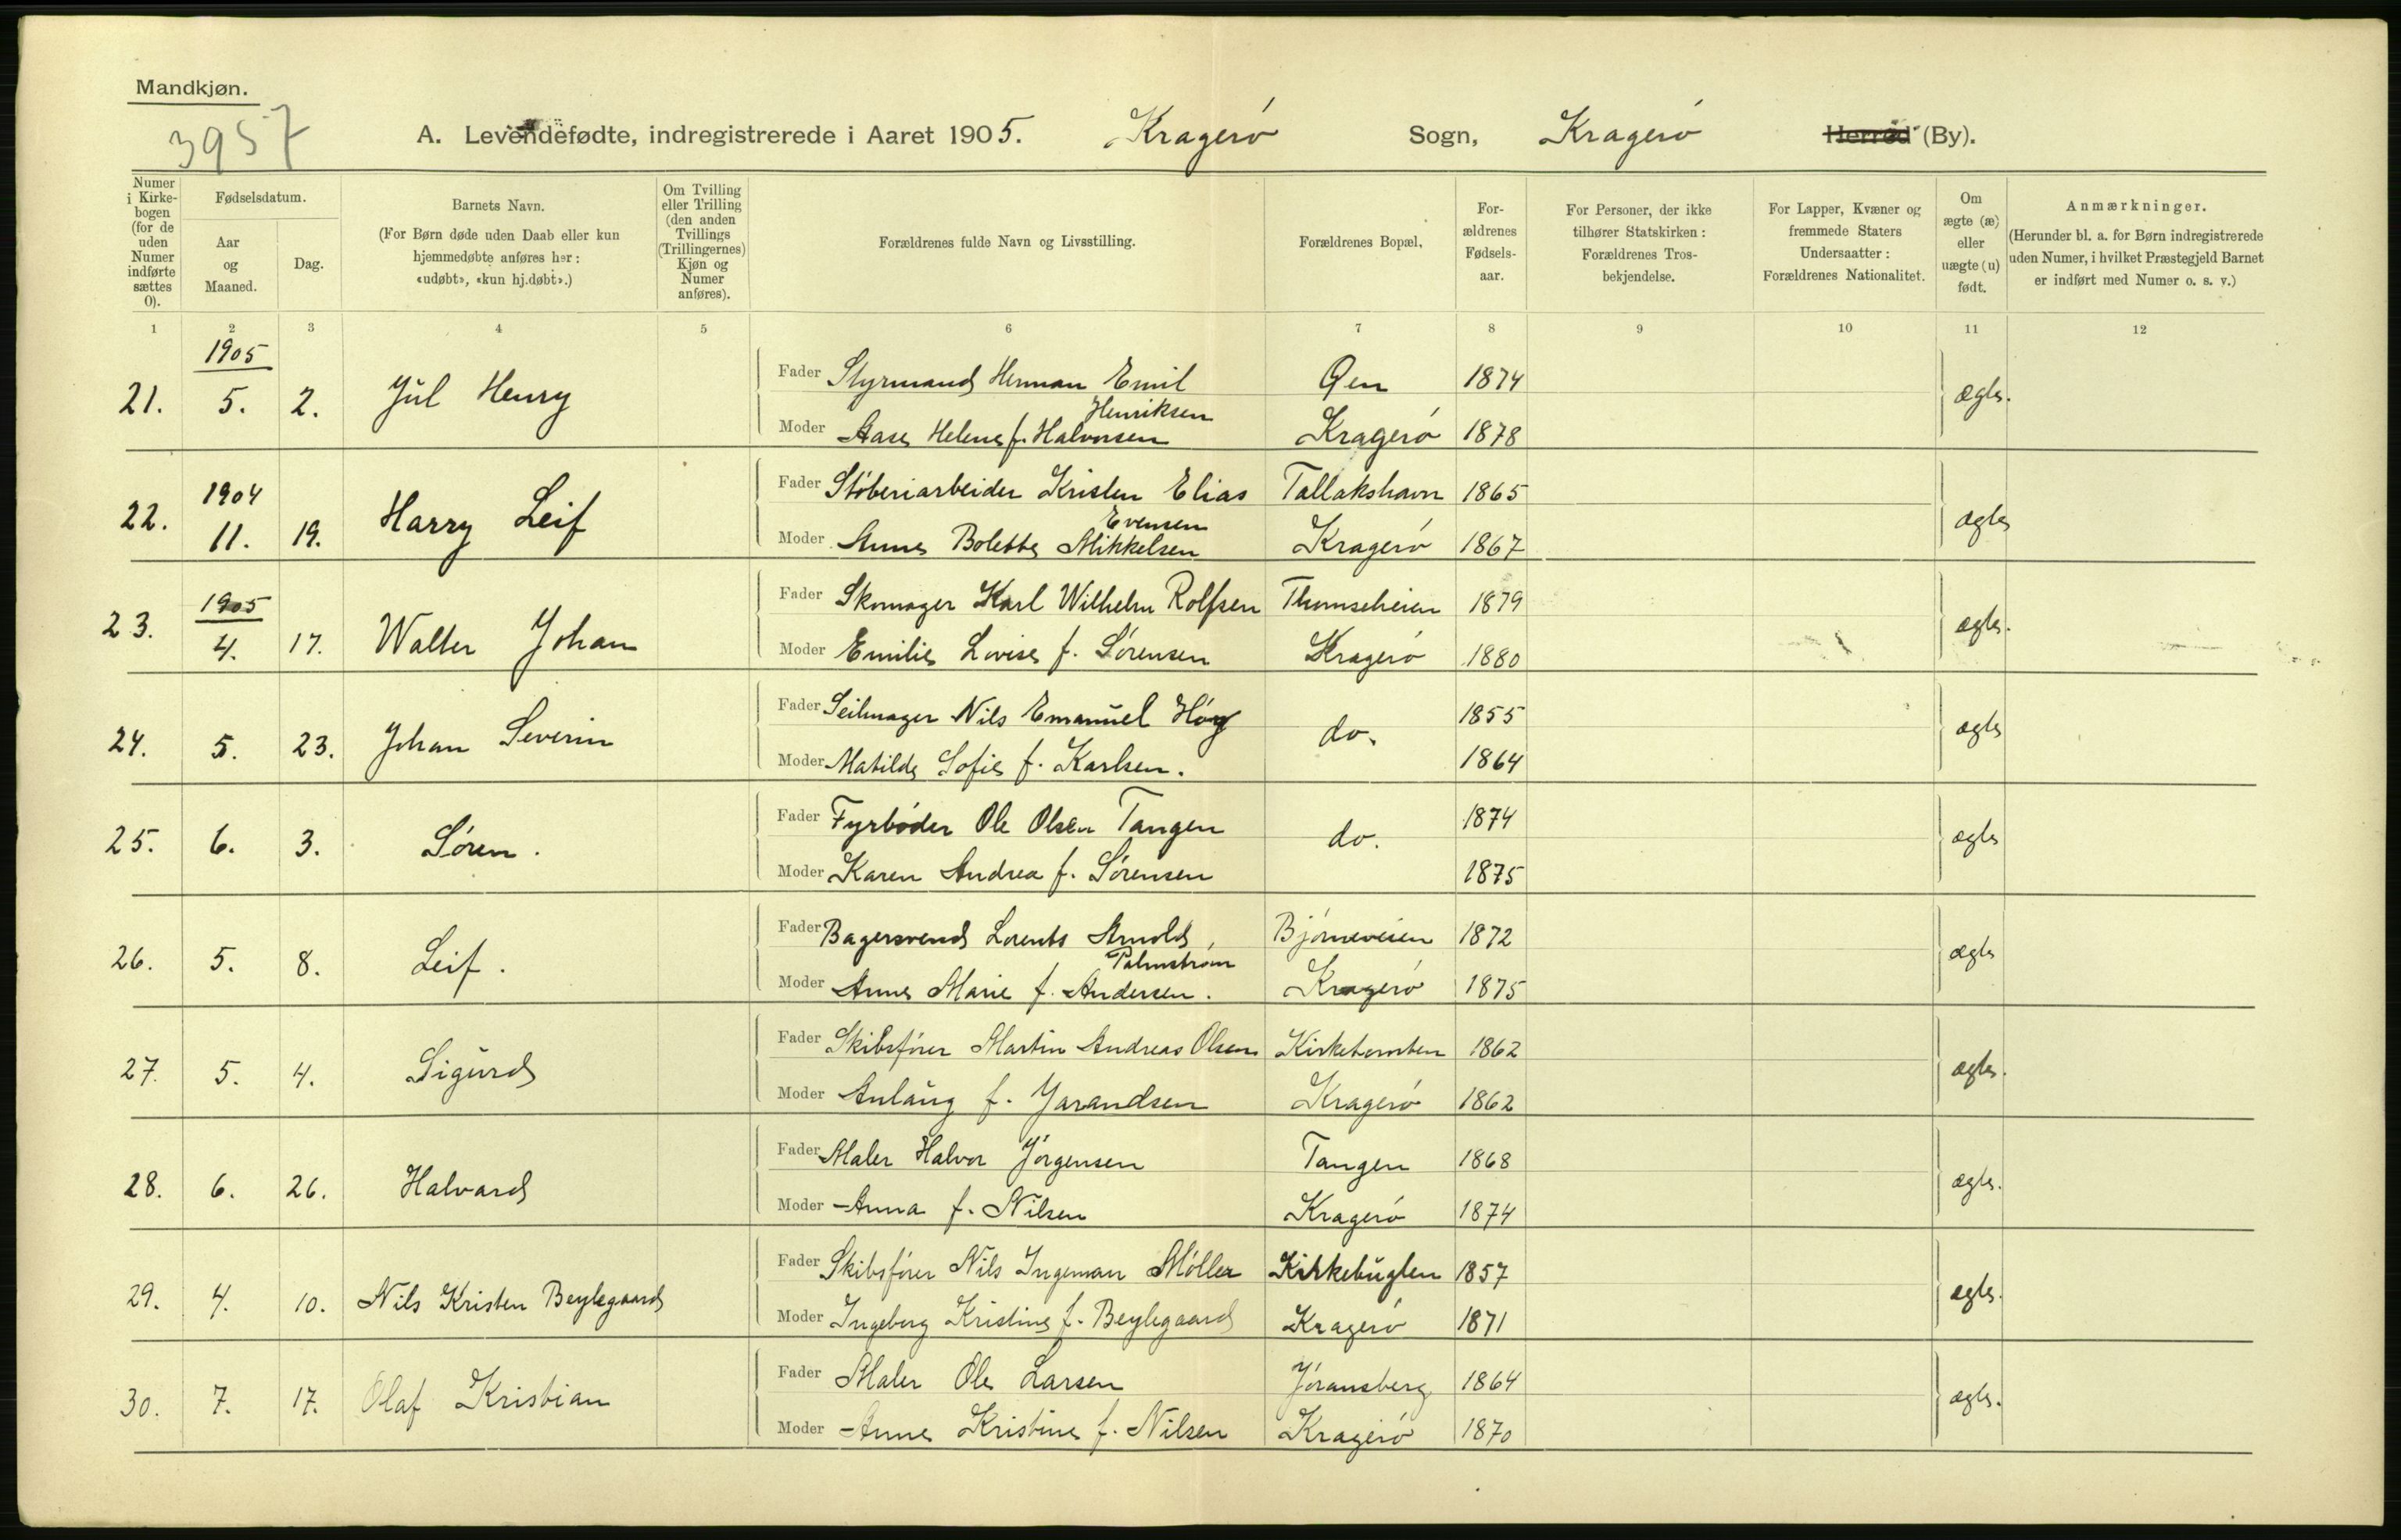 Mandkjøn.
3957
A. Levendefødte, indregistrerede i Aaret 1905. Kragerø Sogn, Kragerø Herred (By).
Numer i Kirkebogen (for de uden Numer indførte sættes 0).
Fødselsdatum.
Aar og Maaned.
Dag.
Barnets Navn.
(For Børn døde uden Daab eller kun hjemmedøbte anføres her: «udøbt», «kun hj.døbt».)
Om Tvilling eller Trilling (den anden Tvillings (Trillingernes) Kjøn og Numer anføres).
Forældrenes fulde Navn og Livsstilling.
Forældrenes Bopæl,
Forældrenes Fødselsaar.
For Personer, der ikke tilhører Statskirken: Forældrenes Trosbekjendelse.
For Lapper, Kvæner og fremmede Staters Undersaatter: Forældrenes Nationalitet.
Om ægte (æ) eller uægte (u) født.
Anmærkninger.
(Herunder bl. a. for Børn indregistrerede uden Numer, i hvilket Præstegjeld Barnet er indført med Numer o. s. v.)
1 2 3 4 5 6 7 8 9 10 11 12
1905
21. 5. 2. Jul Henry
Fader Styrmand Herman Emil Henriksen Øen 1874
Moder Aase Helene f. Halvorsen Kragerø 1878
ægte.
1904
22. 11. 19. Harry Leif
Fader Støberiarbeider Kristen Elias Evensen Tallakshavn 1865
Moder Anne Bolette Mikkelsen Kragerø 1867
ægte
1905
23. 4. 17. Walter Johan
Fader Skomager Karl Wilhelm Rolfsen Thomseheien 1879
Moder Emilie Lovise f. Sørensen Kragerø 1880
ægte.
24. 5. 23. Johan Severin
Fader Seilmager Nils Emanuel Høeg do. 1855
Moder Matilde Sofie f. Karlsen. 1864
ægte
25. 6. 3. Søren.
Fader Fyrbøder Ole Olsen Tangen do. 1874
Moder Karen Andrea f. Sørensen 1875
ægte
26. 5. 8. Leif.
Fader Bagersvend Lorents Arnold Palmstrøm Bjørneveien 1872
Moder Anne Marie f. Andersen. Kragerø 1875
ægte
27. 5. 4. Sigurd
Fader Skibsfører Martin Andreas Olsen Kirketomten 1862
Moder Anlaug f. Jarandsen Kragerø 1862
ægte.
28. 6. 26. Halvard
Fader Maler Halvor Jørgensen Tangen 1868
Moder Anna f. Nilsen Kragerø 1874
ægte.
29. 4. 10. Nils Kristen Beylegaard
Fader Skibsfører Nils Ingeman Møller Kirkebugten 1857
Moder Ingeborg Kristine f. Beylegaard Kragerø 1871
ægte.
30. 7. 17. Olaf Kristian
Fader Maler Ole Larsen Jøransberg 1864
Moder Anne Kristine f. Nilsen Kragerø 1870
ægte.